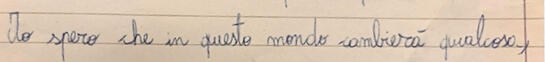 Io spero che in questo mondo cambierà qualcosa,